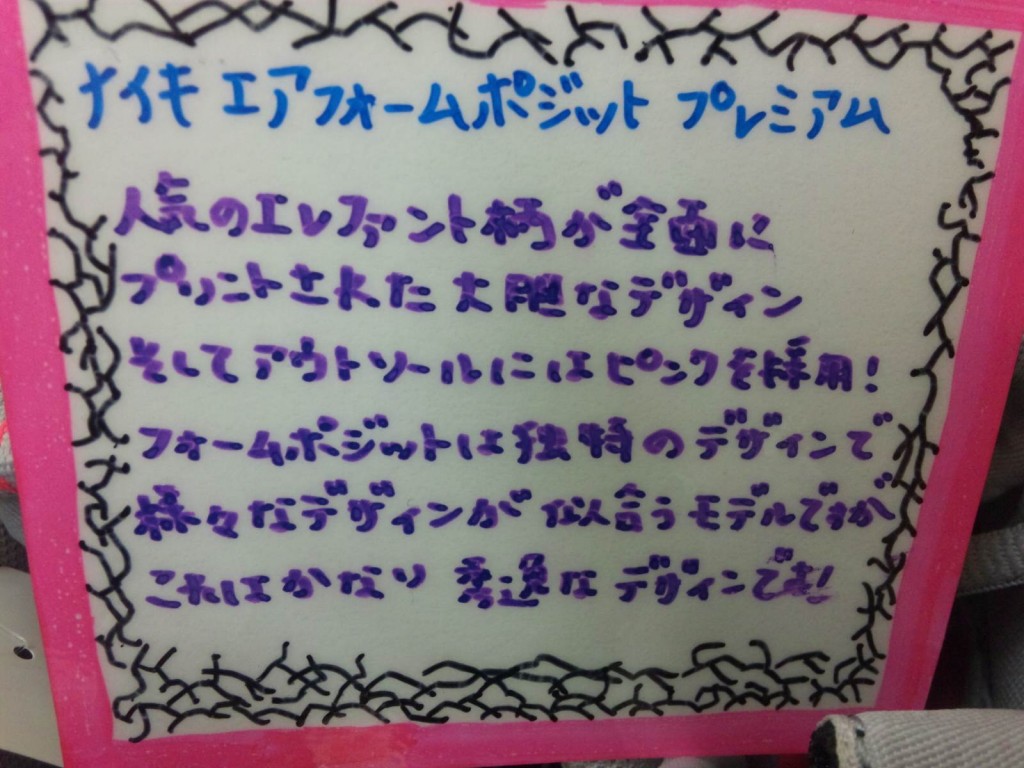 ナイキ エアフォームポジット プレミアム
人気のエレファント柄が全面に
プリントされた大胆なデザイン
そしてアウトソールにはピンクを採用!
フォームポジットは独特のデザインで
様々なデザインが似合うモデルですが
これはかなり秀逸なデザインです!